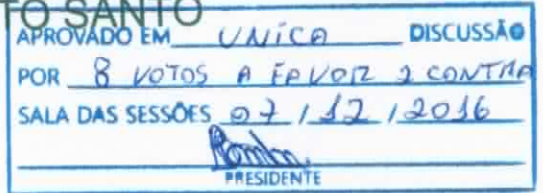 TO SANTO
APROVADO EM UNICA DISCUSSÃO
POR 8 VOTOS A FAVOR 2 CONTRA
SALA DAS SESSÕES 07 / 12 / 2016
PRESIDENTE